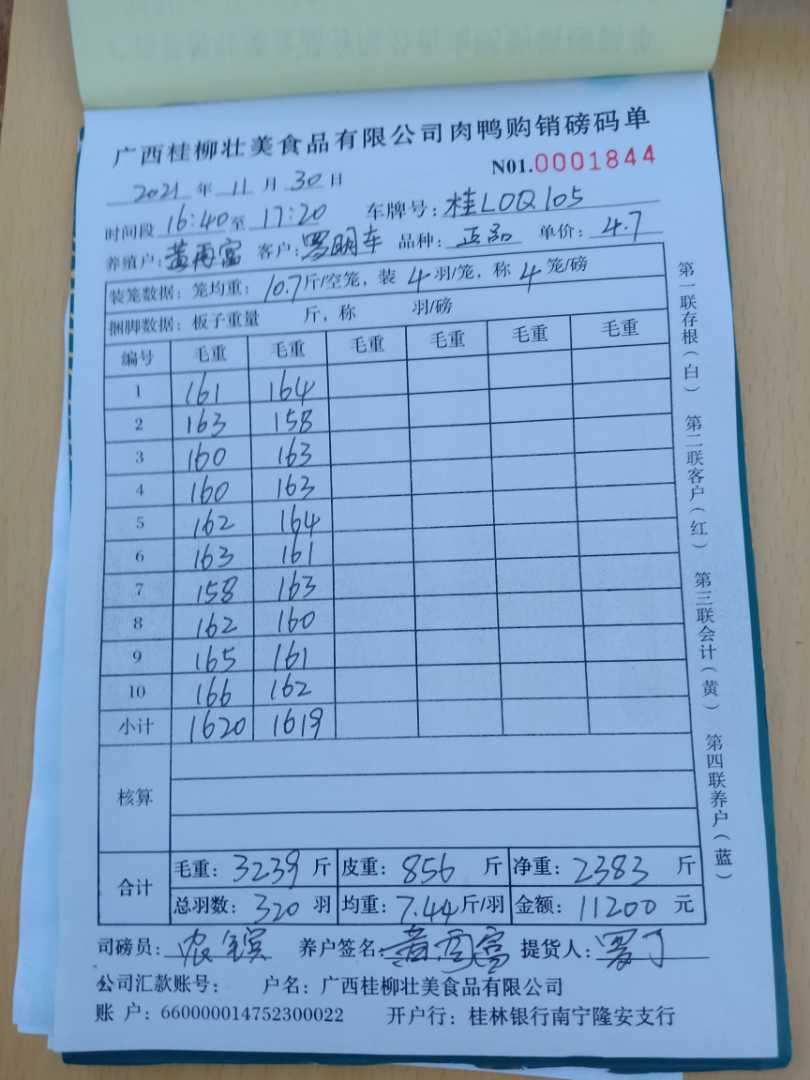 广西桂柳壮美食品有限公司肉鸭购销磅码单
N01.0001844
2021 年 11 月 30 日
时间段 16:40 至 17:20 车牌号: 桂L0Q105
养殖户: 黄再富 客户: 罗明车 品种: 正品 单价: 4.7
装笼数据: 笼均重: 10.7 斤/空笼, 装 4 羽/笼, 称 4 笼/磅
捆脚数据: 板子重量 斤, 称 羽/磅
编号 毛重 毛重 毛重 毛重 毛重 毛重
1 161 164
2 163 158
3 160 163
4 160 163
5 162 164
6 163 161
7 158 163
8 162 160
9 165 161
10 166 162
小计 1620 1619
核算
合计 毛重: 3239 斤 皮重: 856 斤 净重: 2383 斤
总羽数: 320 羽 均重: 7.44 斤/羽 金额: 11200 元
司磅员: 农 养户签名: 黄再富 提货人: 罗
公司汇款账号: 户名: 广西桂柳壮美食品有限公司
账 户: 660000014752300022 开户行: 桂林银行南宁隆安支行
第一联存根(白) 第二联客户(红) 第三联会计(黄) 第四联养户(蓝)